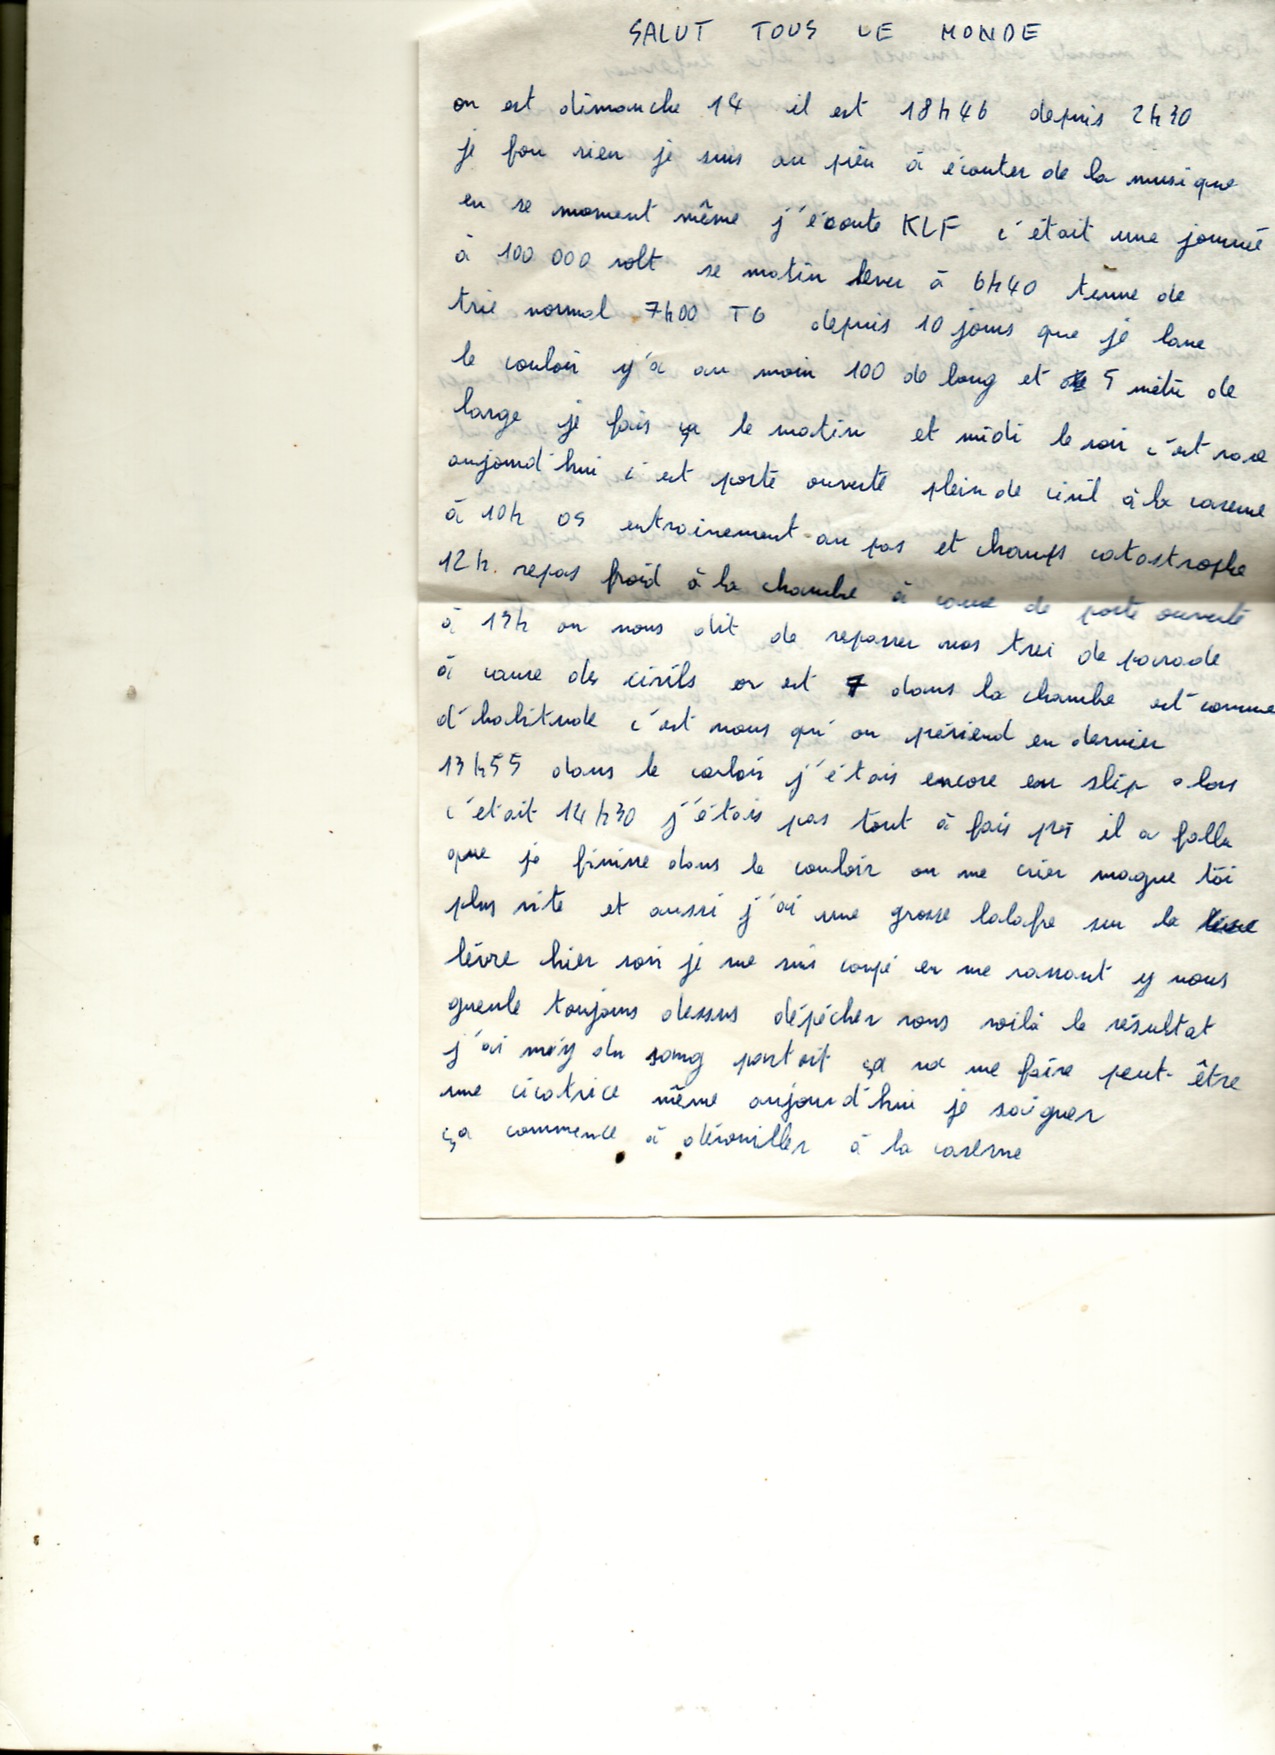 SALUT TOUS LE MONDE
on est dimanche 14 il est 18h46 depuis 2h30
je fou rien je suis au pieu à écouter de la musique
en se moment même j'écoute KLF c'était une journée
à 100 000 volt se matin lever à 6h40 tenue de
trie normal 7h00 TG depuis 10 jours que je lave
le couloir y'a au moin 100 de long et 5 mètre de
large je fais ça le matin et midi le soir c'est rare
aujourd'hui c'est porte ouverte plein de civil à la caserne
à 10h 05 entrainement au pas et champs catastrophe
12h. repas froid à la chambre à cause de porte ouverte
à 13h on nous dit de repasser nos trei de parade
à cause des civils on est 7 dans la chambre est comme
d'habitude c'est nous qu'on prévient en dernier
13h55 dans le couloir j'étais encore en slip alors
c'était 14h30 j'étais pas tout à fais prés il a fallu
que je finisse dans le couloir on me crier magne tôi
plus vite et aussi j'ai une grosse balafre sur la
lèvre hier soir je me suis coupé en me rasant y nous
gueule toujours dessus dépécher vous voilà le résultat
j'ai du sang partout ça va me faire peut-être
une cicatrice même aujourd'hui je saigner
ça commence à dérouiller à la caserne